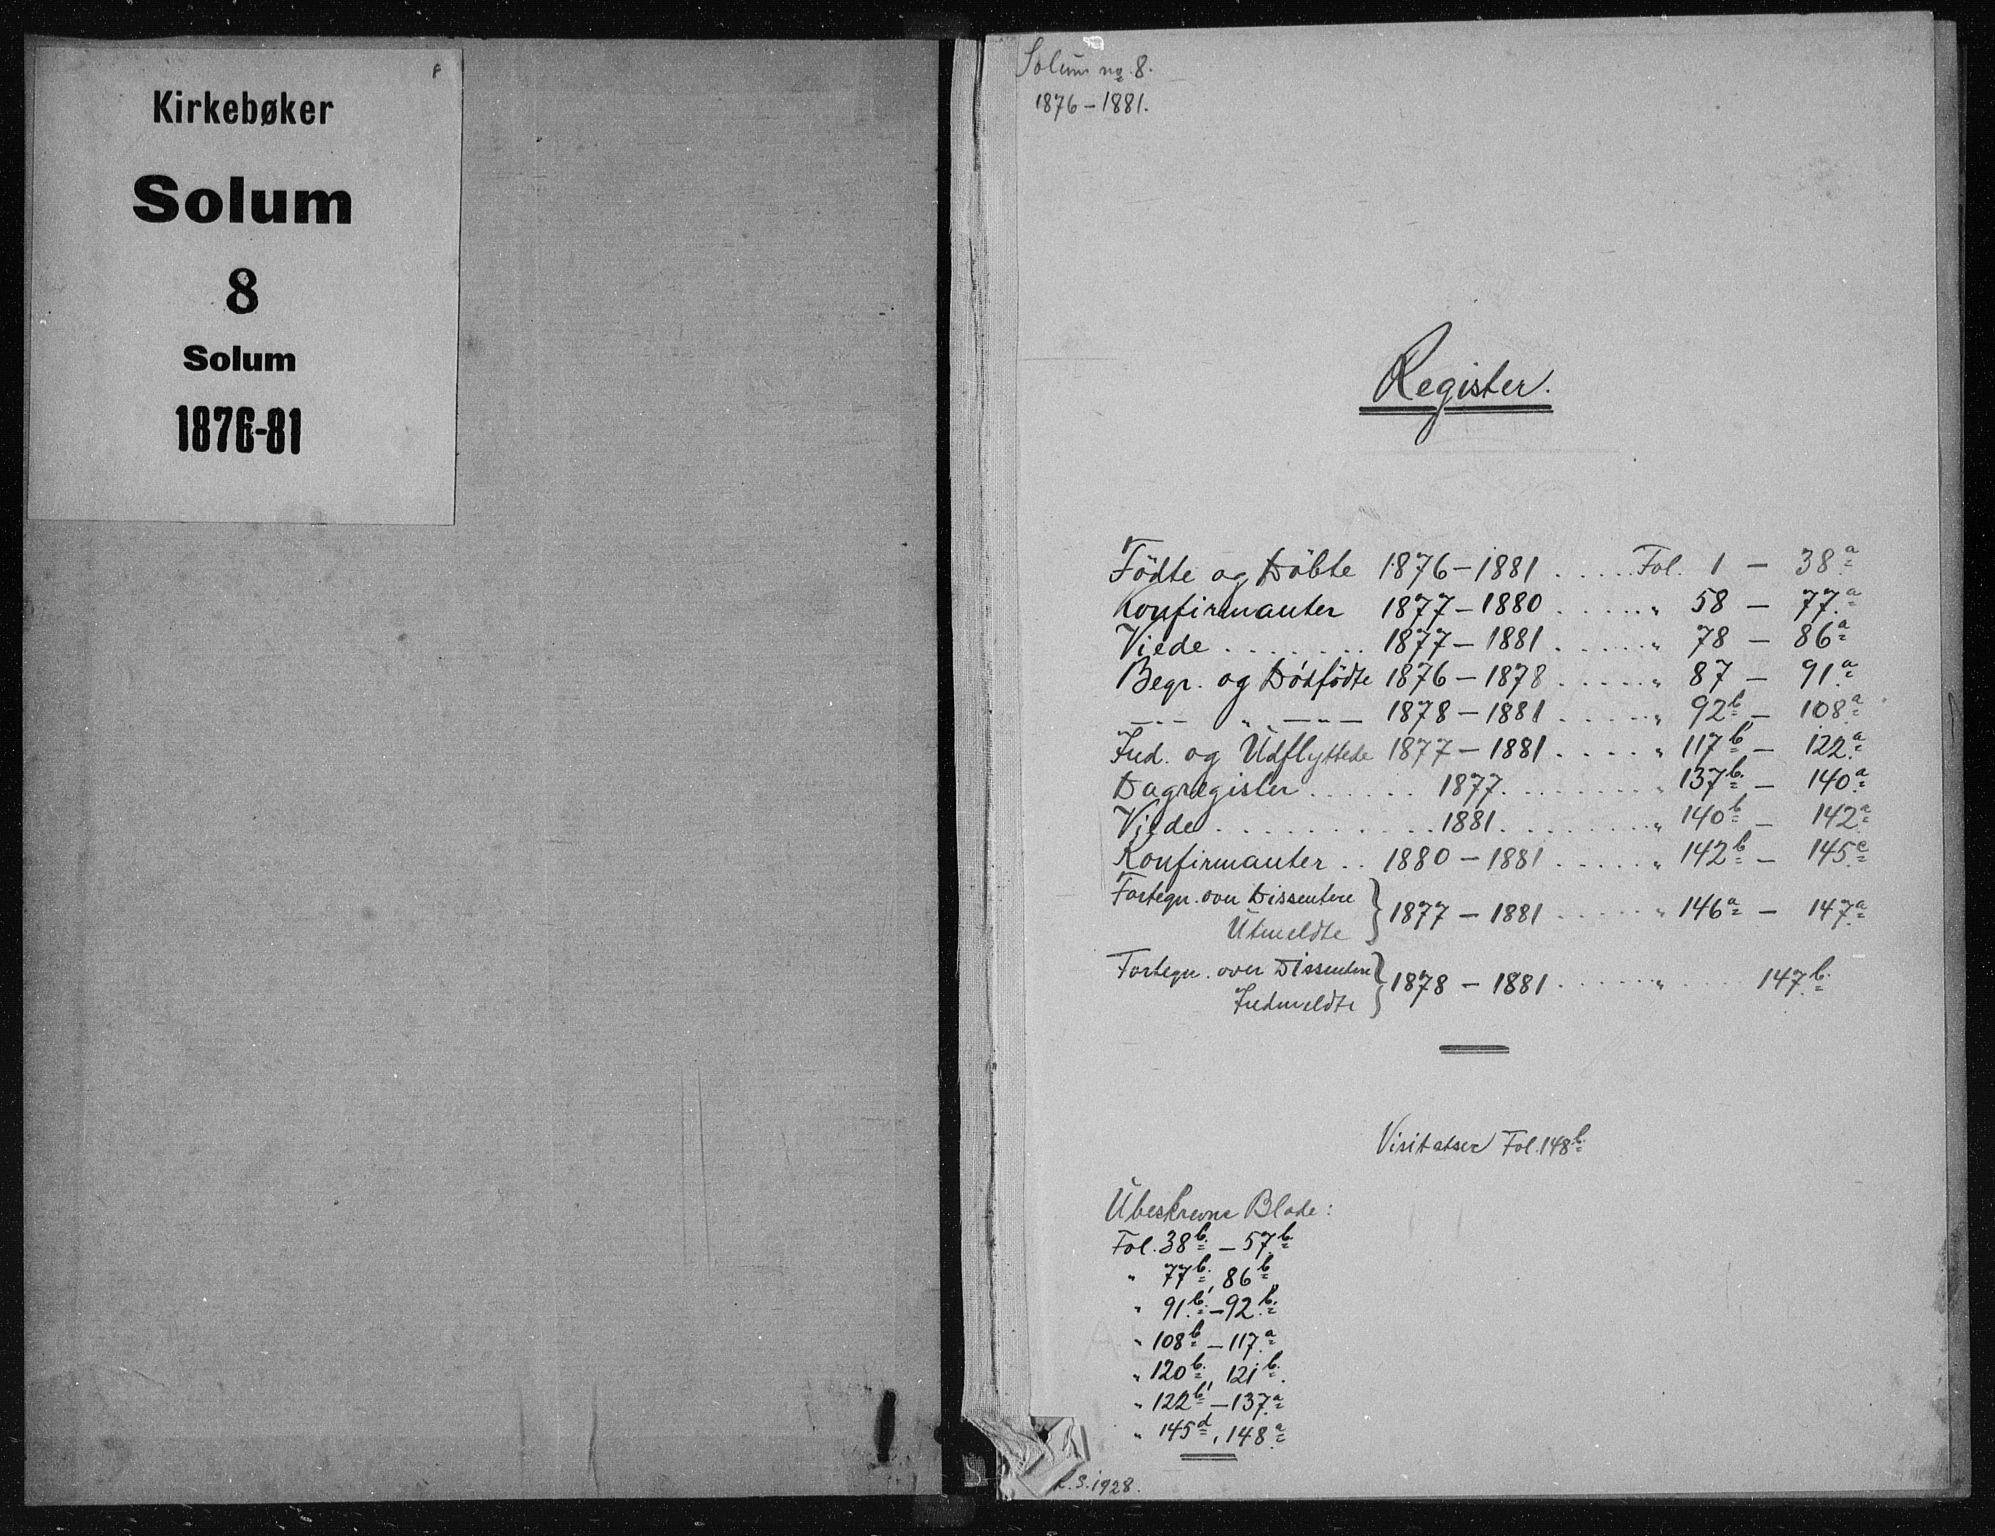 Kirkebøker
Solum
8
Solum
1876-81
Solum no. 8.
1876 – 1881.
Register.
Födte og Döbte 1876 – 1881 . . . . . Fol. 1 – 38a
Konfirmanter 1877 – 1880 . . . . . " 58 – 77a
Viede . . . . . . . 1877 – 1881 . . . . . " 78 – 86a
Begr. og Dödfödte 1876 – 1878 . . . . . " 87 – 91a
—"— " —"— 1878 – 1881 . . . . . " 92b – 108a
Ind. og Udflyttede 1877 – 1881 . . . . " 117b – 122a
Dagregister . . . . . . 1877 . . . . . . . . " 137b – 140a
Viede . . . . . . . . . . . 1881 . . . . . . . . " 140b – 142a
Konfirmanter . . 1880 – 1881 . . . . . " 142b – 145c
Fortegn. over Dissentere
Utmeldte } 1877 – 1881 . . . . . " 146a – 147a
Fortegn. over Dissentere
Indmeldte } 1878 – 1881 . . . . . " . . . . 147b
Visitatser Fol. 148b
Ubeskrevne Blade:
Fol. 38b – 57b
" 77b, 86b
" 91b – 92b
" 108b – 117a
" 120b, 121b.
" 122b – 137a
" 145d, 148a
S. 1928.